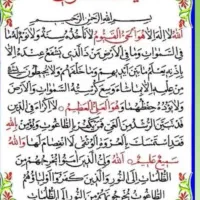 بسم الله الرحمن الرحيم
الله لا اله الا هو الحي القيوم لا تأخذه سنة ولا نوم له ما
في السموات وما في الارض من ذا الذي يشفع عنده الا
باذنه يعلم ما بين ايديهم وما خلفهم ولا يحيطون بشيء
من علمه الا بما شاء وسع كرسيه السموات والارض
ولا يؤده حفظهما وهو العلي العظيم لا اكراه في الدين
قد تبين الرشد من الغي فمن يكفر بالطاغوت ويؤمن بالله
فقد استمسك بالعروة الوثقى لا انفصام لها والله
سميع عليم الله ولي الذين آمنوا يخرجهم من
الظلمات الى النور والذين كفروا اولياؤهم
الطاغوت يخرجونهم من النور الى الظلمات